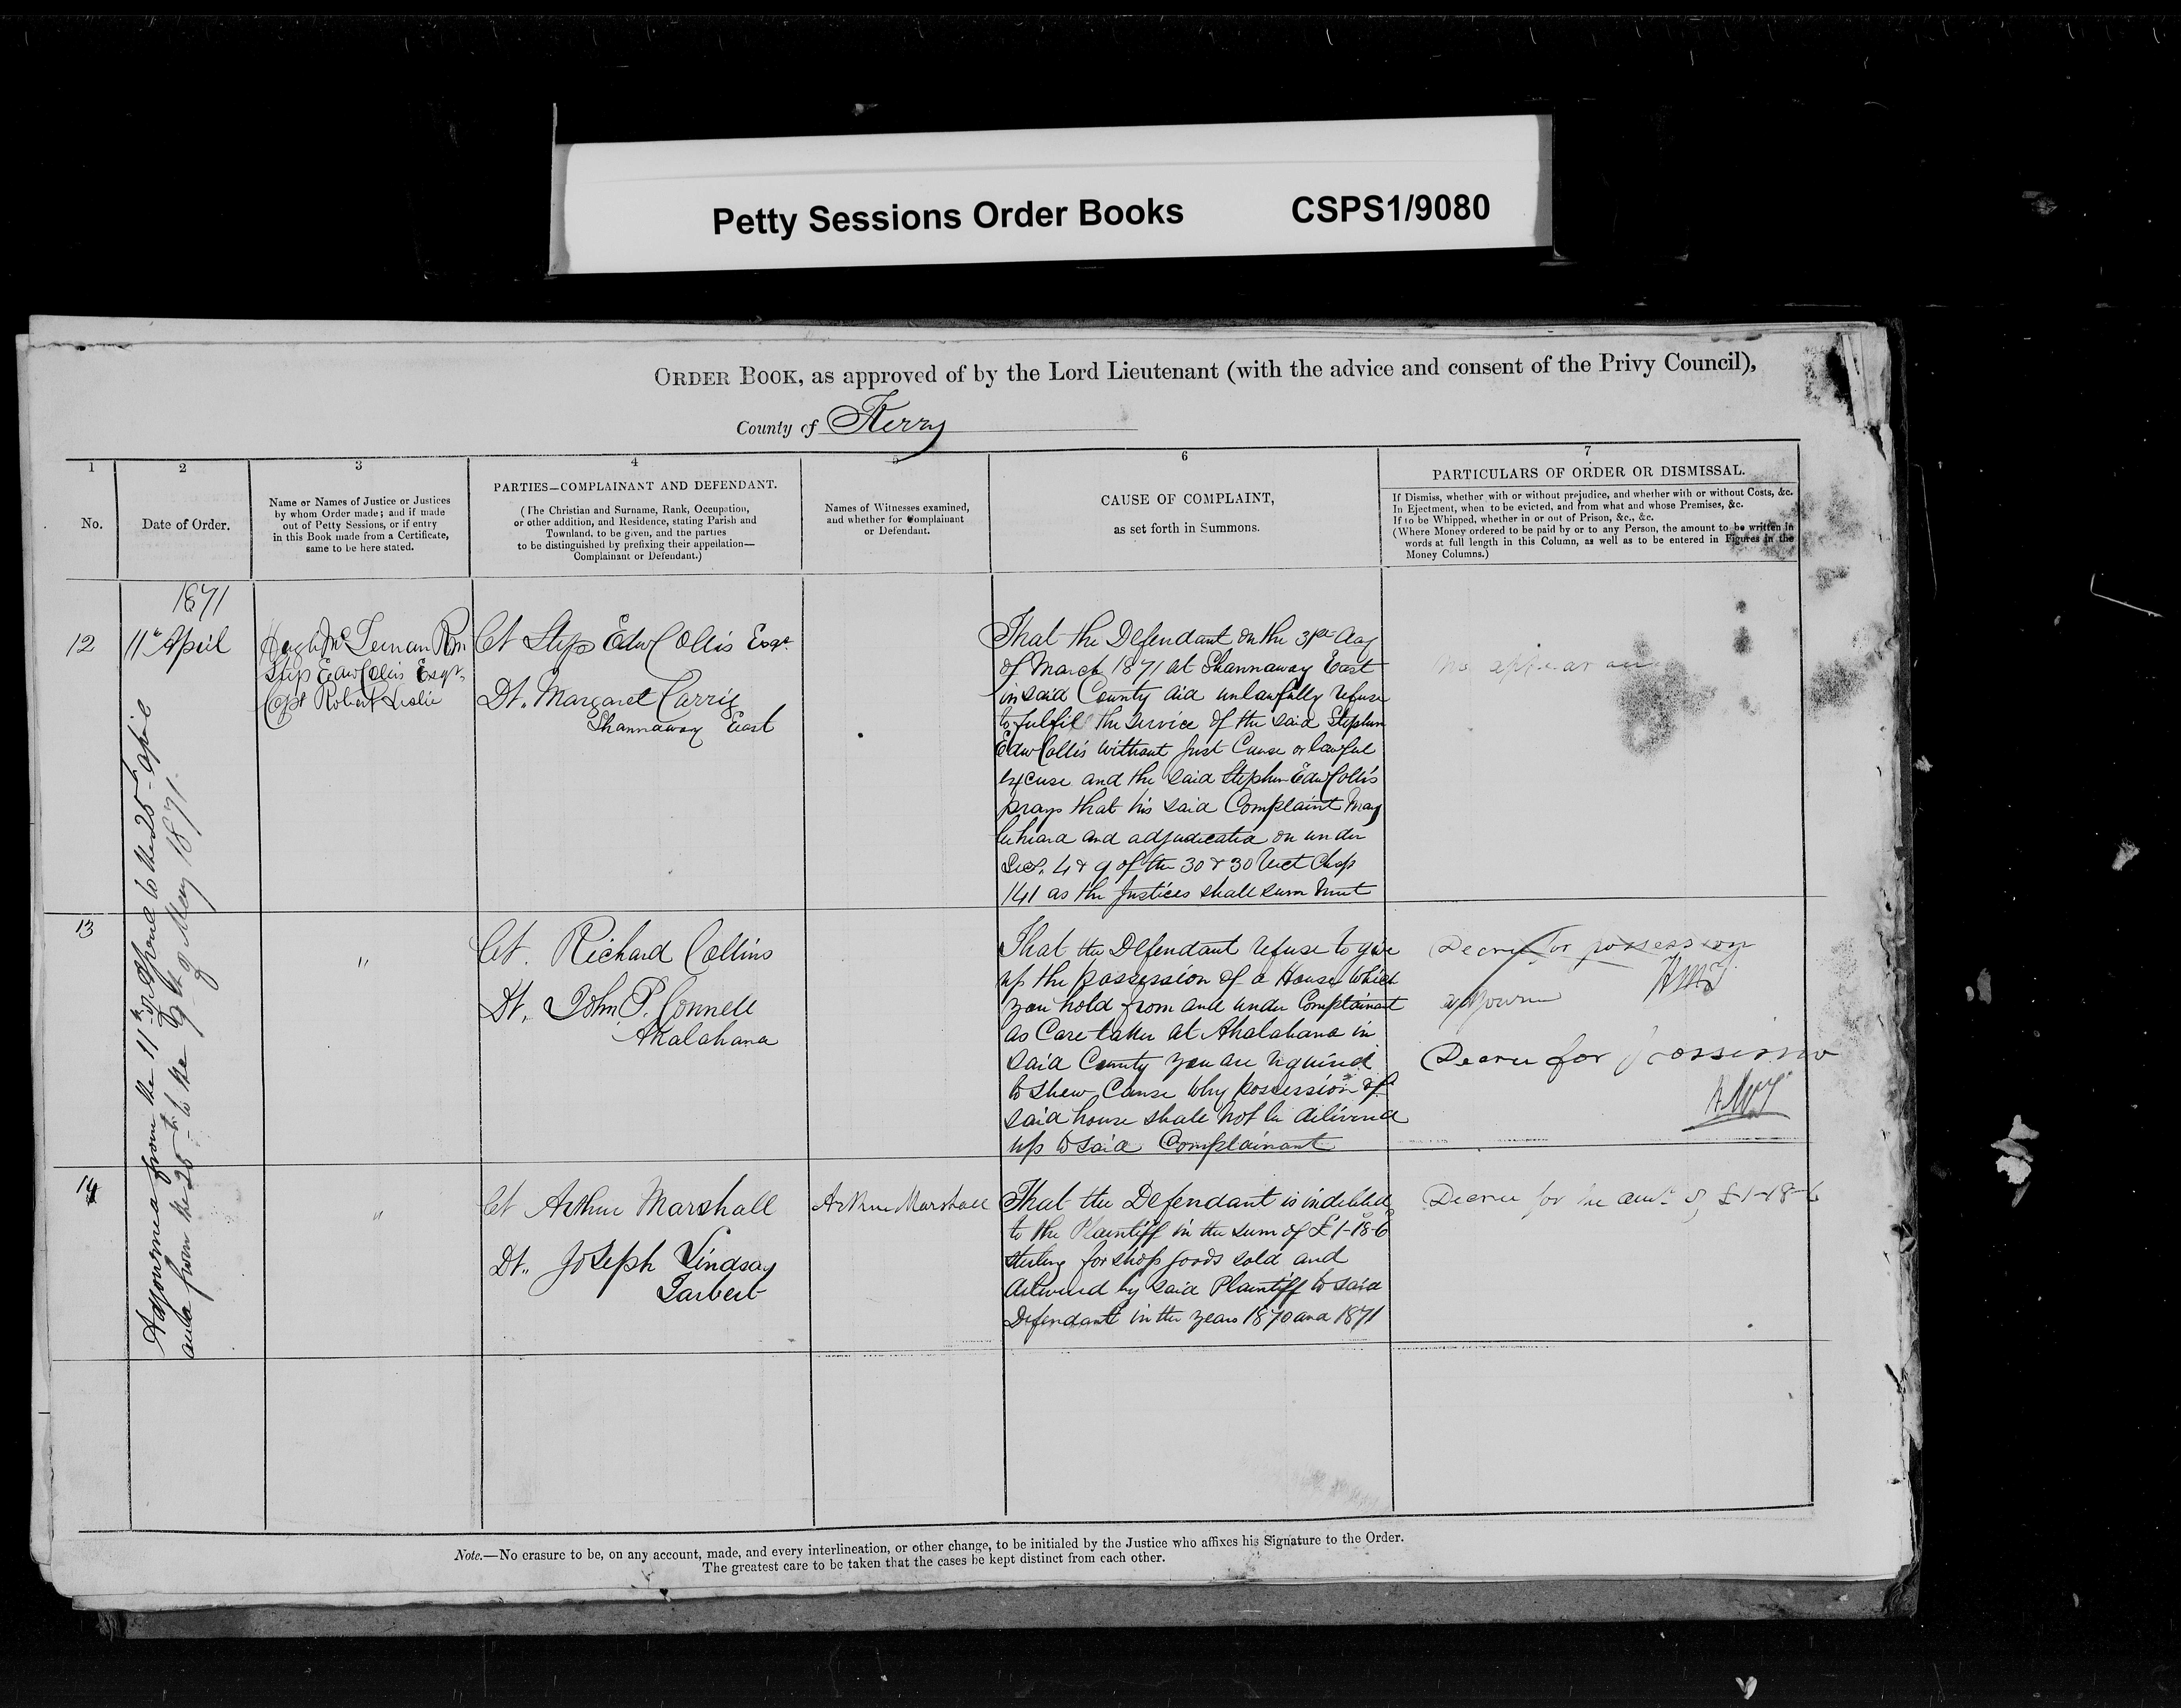 Petty Sessions Order Books CSPS1/9080
ORDER BOOK, as approved of by the Lord Lieutenant (with the advice and consent of the Privy Council),
County of Kerry
1 2 3 4 5 6 7
No.
Date of Order.
Name or Names of Justice or Justices
by whom Order made; and if made
out of Petty Sessions, or if entry
in this Book made from a Certificate,
same to be here stated.
PARTIES—COMPLAINANT AND DEFENDANT.
(The Christian and Surname, Rank, Occupation,
or other addition, and Residence, stating Parish and
Townland, to be given, and the parties
to be distinguished by prefixing their appellation—
Complainant or Defendant.)
Names of Witnesses examined,
and whether for Complainant
or Defendant.
CAUSE OF COMPLAINT,
as set forth in Summons.
PARTICULARS OF ORDER OR DISMISSAL.
If Dismiss, whether with or without prejudice, and whether with or without Costs, &c.
In Ejectment, when to be evicted, and from what and whose Premises, &c.
If to be Whipped, whether in or out of Prison, &c., &c.
(Where Money ordered to be paid by or to any Person, the amount to be written in
words at full length in this Column, as well as to be entered in Figures in the
Money Columns.)
1871
12
11th April
Hugh Mc Ternan Rm
Step Edw Collis Esqr
Capt Robert Leslie
Ct Step Edw Collis Esqr
Dt. Margaret Carrig
Shannaway East
That the Defendant on the 31st day
of March 1871 at Shannaway East
in said County did unlawfully refuse
to fulfil the service of the said Stephen
Edw Collis without just Cause or lawful
excuse and the said Stephen Edw Collis
prays that his said Complaint may
be heard and adjudicated on under
Sec. 4 & 9 of the 30 & 30 Vict Chap
141 as the Justices shall seem meet
no appearance
Adjourned from the 11th of April to the 25th April
and from the 25th to the 9th of May 1871
13
"
Ct. Richard Collins
Dt. John P. Connell
Ahalahana
That the Defendant refuse to give
up the possession of a House which
you hold from and under Complainant
as Care taker at Ahalahana in
said County you are required
to shew Cause why possession of
said house shall not be delivered
up to said Complainant
Decree for possession
adjourn
Decree for possession
14
"
Ct Arthur Marshall
Dt. Joseph Lindsay
Tarbert
Arthur Marshall
That the Defendant is indebted
to the Plaintiff in the sum of £1-18-6
sterling for shop goods sold and
delivered by said Plaintiff to said
Defendant in the years 1870 and 1871
Decree for the amt. of £1-18-6
Note.—No erasure to be, on any account, made, and every interlineation, or other change, to be initialed by the Justice who affixes his Signature to the Order.
The greatest care to be taken that the cases be kept distinct from each other.